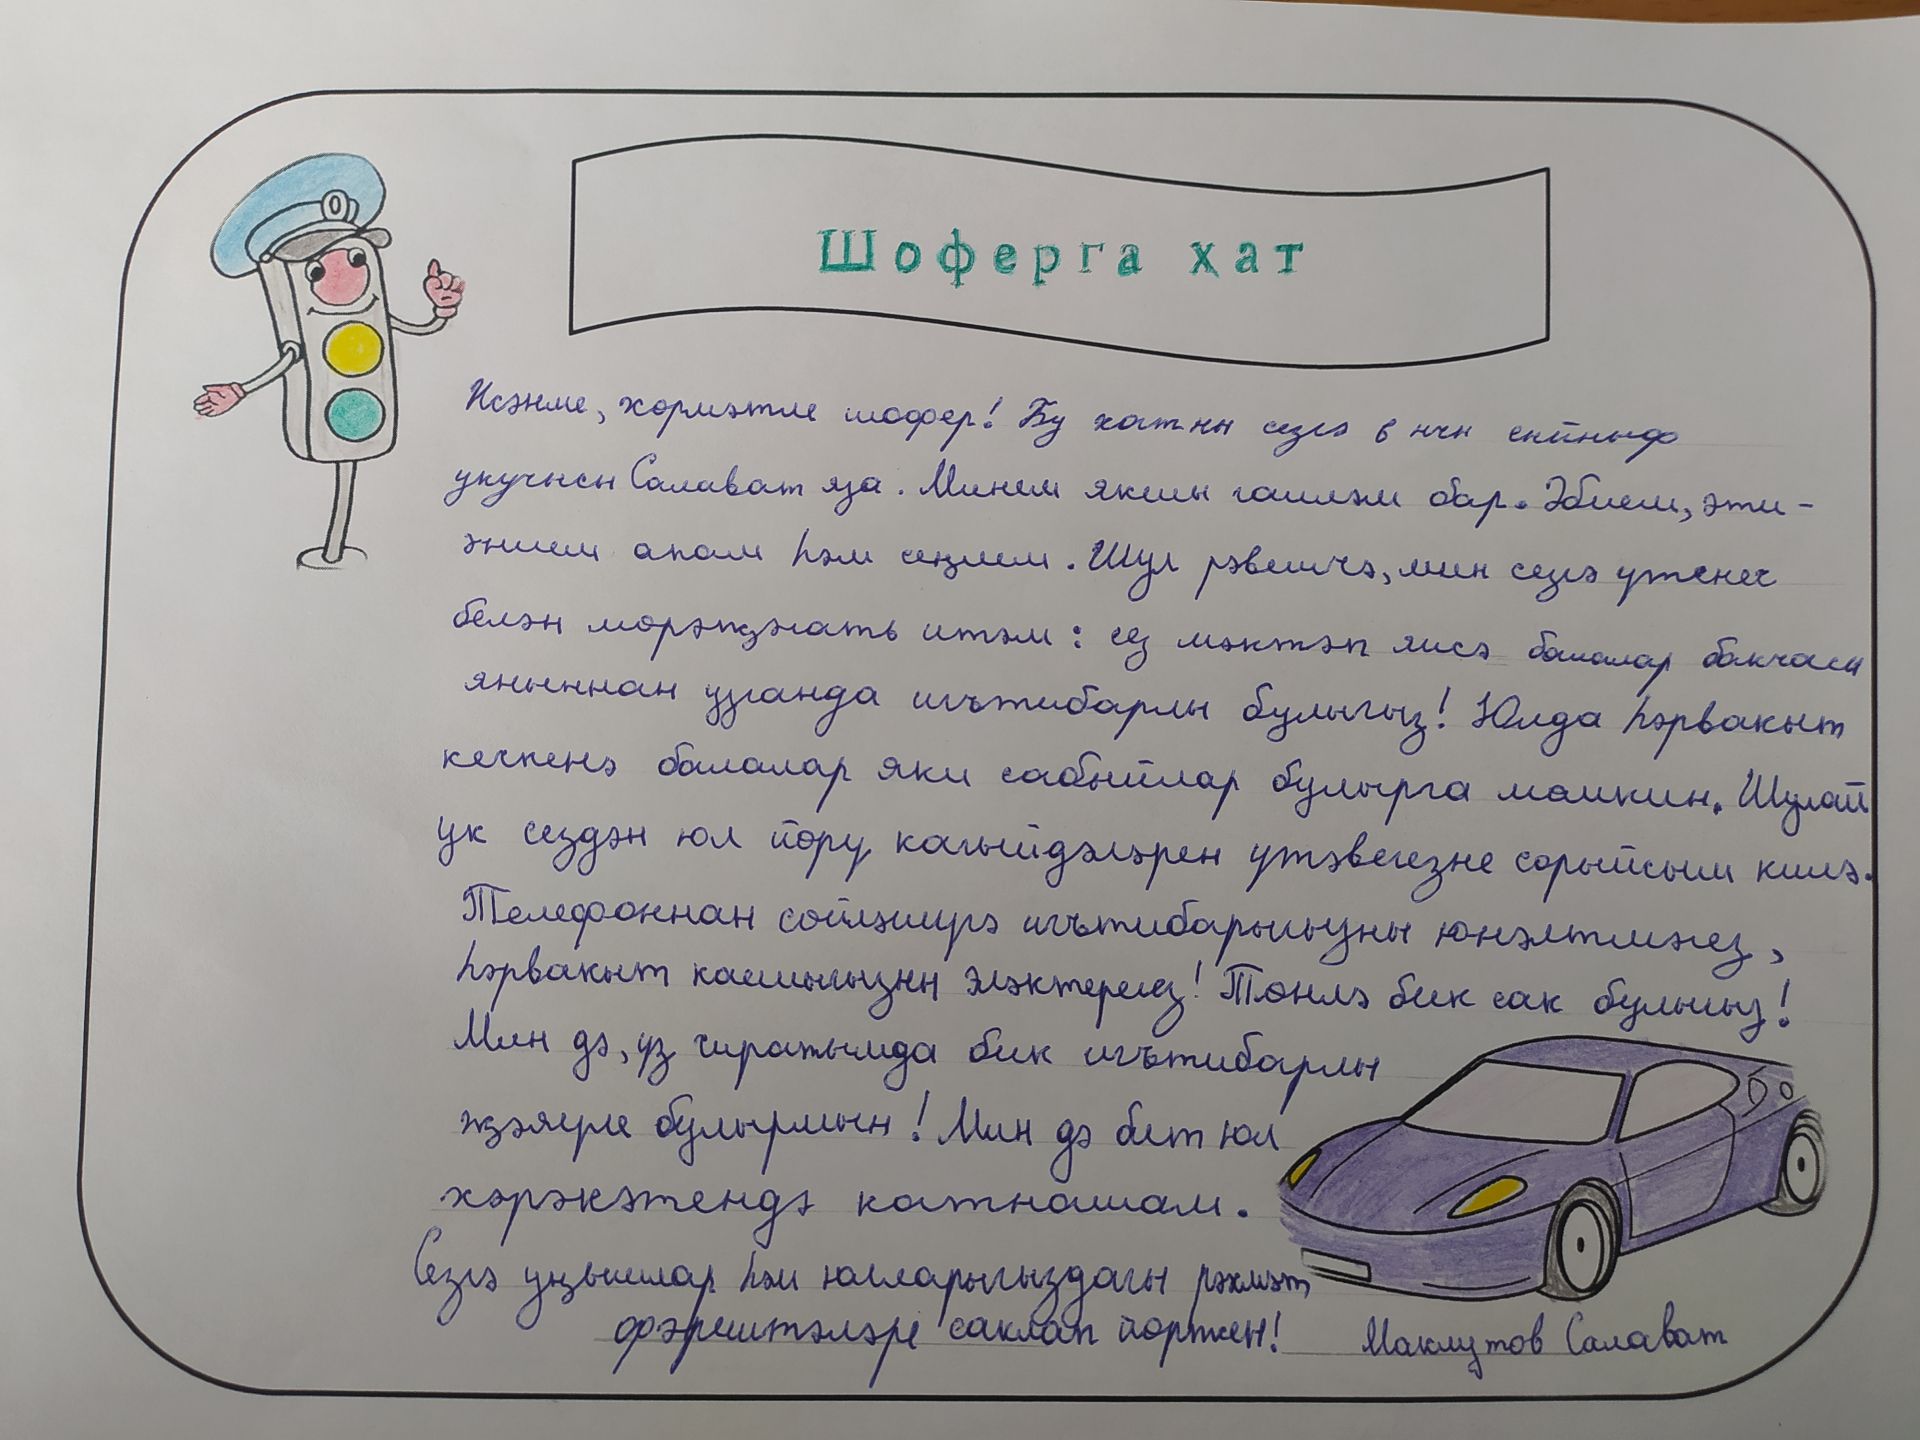 Шоферга хат
Исәнме, хөрмәтле шофер! Бу хатны сезгә 6 нчы сыйныф
укучысы Салават яза. Минем якшы гаиләм бар. Әбием, әти-
әнием апам һәм сеңлем. Шул рәвешчә, мин сезгә үтенеч
белән мөрәҗәгать итәм: сез мәктәп яисә балалар бакчасы
яныннан узганда игътибарлы булыгыз! Юлда һәрвакыт
кечкенә балалар яки сабыйлар булырга мөмкин. Шулай
ук сездән юл йөрү кагыйдәләрен үтәвегезне сорыйсым килә.
Телефоннан сөйләшүгә игътибарыгызны юнәлтмәгез,
һәрвакыт каешыгызны эләктерегез! Төнлә бик сак булыгыз!
Мин дә, үз чиратымда бик игътибарлы
җәяүле булырмын! Мин дә бит юл
хәрәкәтендә катнашам.
Сезгә уңышлар һәм юлларыгыздагы рәхмәт
фәрештәләре саклап йөрткен!
Махмутов Салават